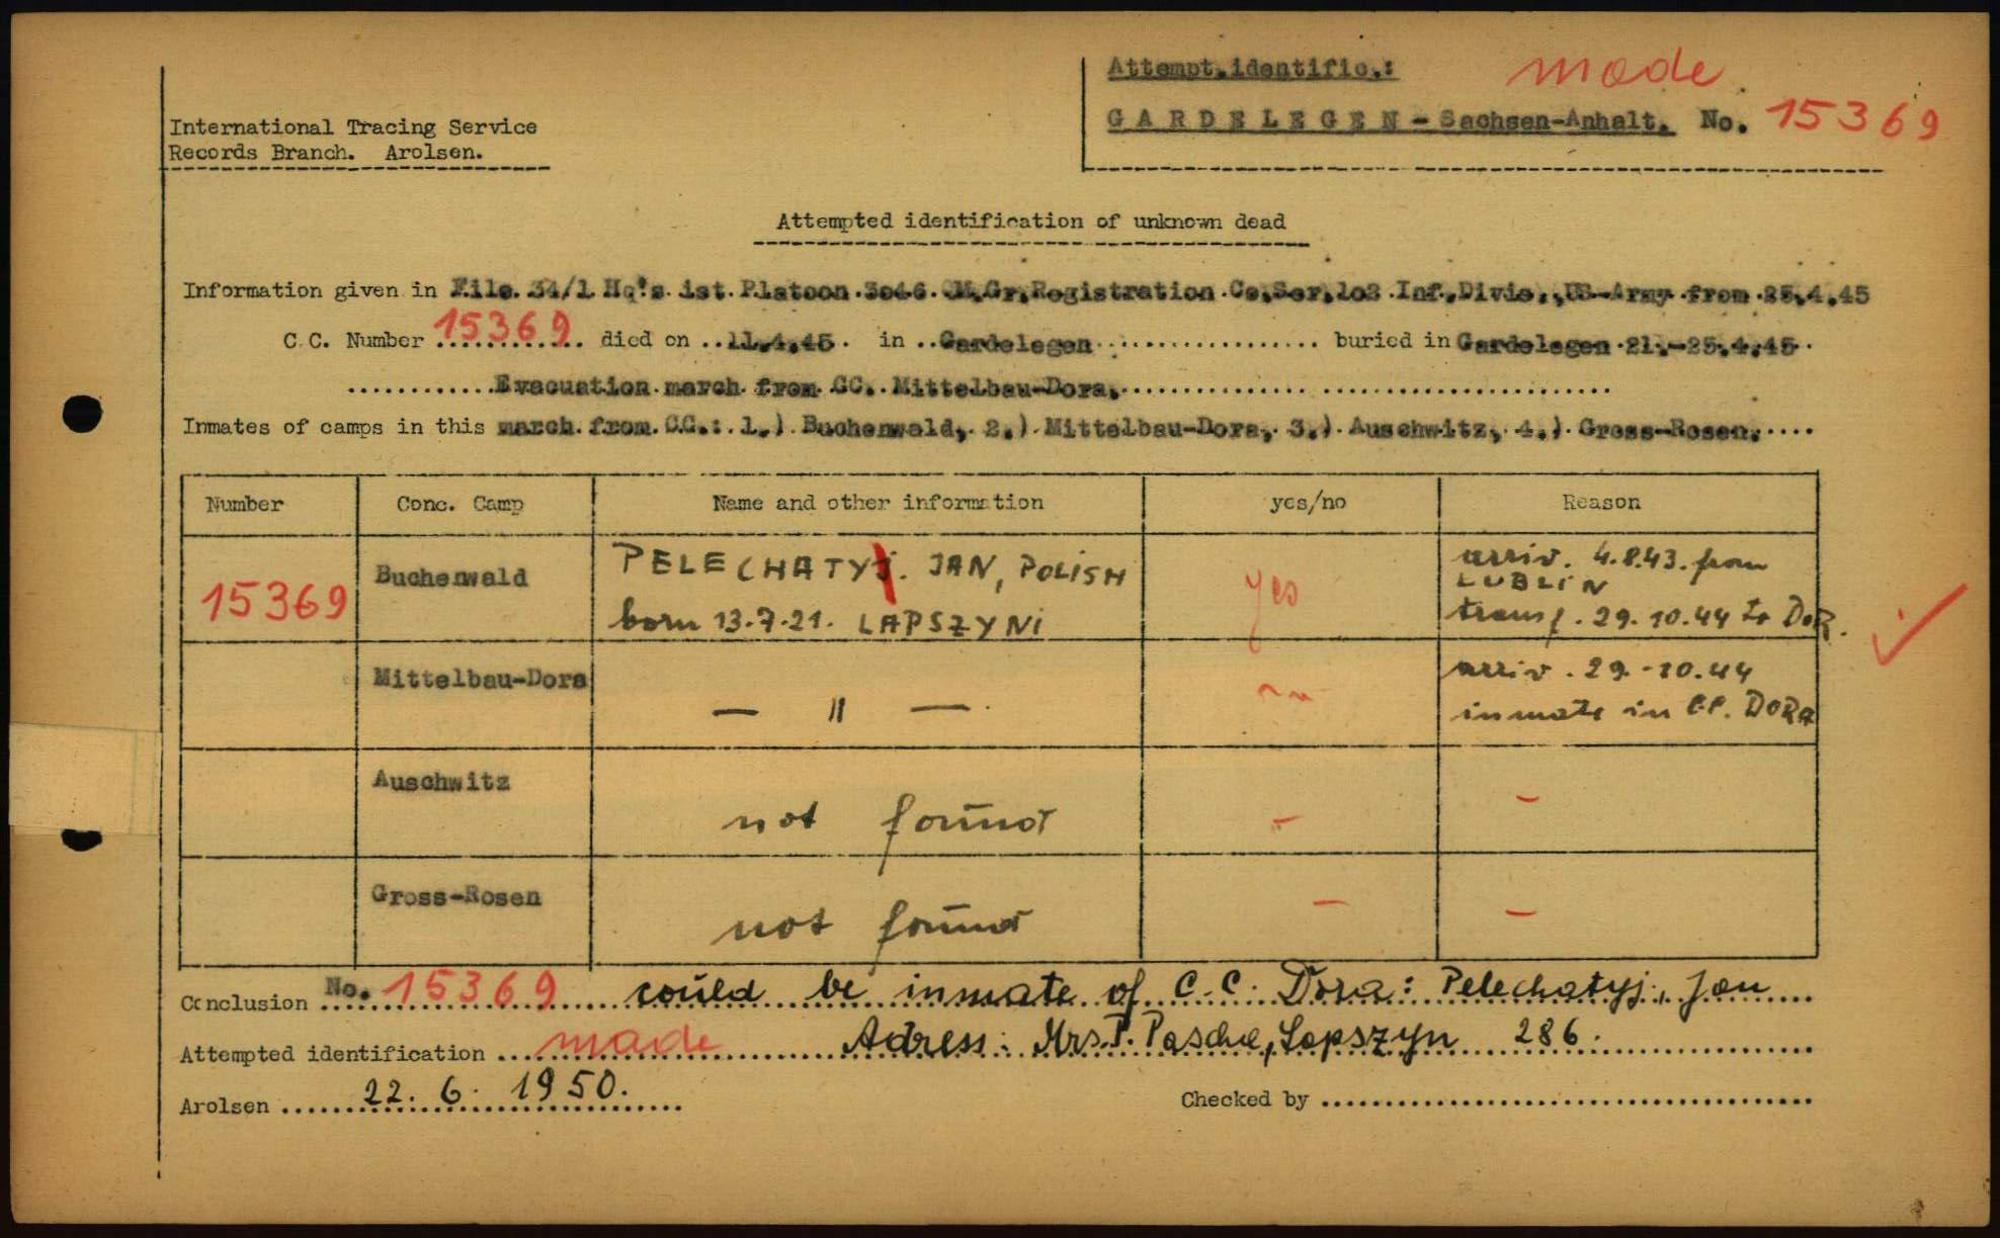 Attempt.identific.: made
GARDELEGEN - Sachsen-Anhalt. No. 15369
International Tracing Service
Records Branch. Arolsen.
Attempted identification of unknown dead
Information given in File. 34/1 Hq's 1st. Platoon 3046. QM.Gr.Registration Co.Ser.102 Inf.Divis.,US-Army from 25.4.45
C.C. Number 15369 died on 11.4.45 in Gardelegen buried in Gardelegen 21.-25.4.45
Evacuation march from CC. Mittelbau-Dora.
Inmates of camps in this march from C.C.: 1.) Buchenwald, 2.) Mittelbau-Dora, 3.) Auschwitz, 4.) Gross-Rosen.
Number Conc. Camp Name and other information yes/no Reason
15369 Buchenwald PELECHATYJ. JAN, POLISH yes arriv. 4.8.43. from
LUBLIN
born 13.7.21. LAPSZYNI transf. 29.10.44 to DOR.
Mittelbau-Dora — " — arriv. 29.-10.44
inmate in CC. DORA
Auschwitz not found - -
Gross-Rosen not found - -
Conclusion No. 15369 could be inmate of C.C. Dora: Pelechatyj, Jan
Attempted identification made Adress: Mrs. P. Pasche, Lopszyn 286.
Arolsen 22. 6. 1950. Checked by